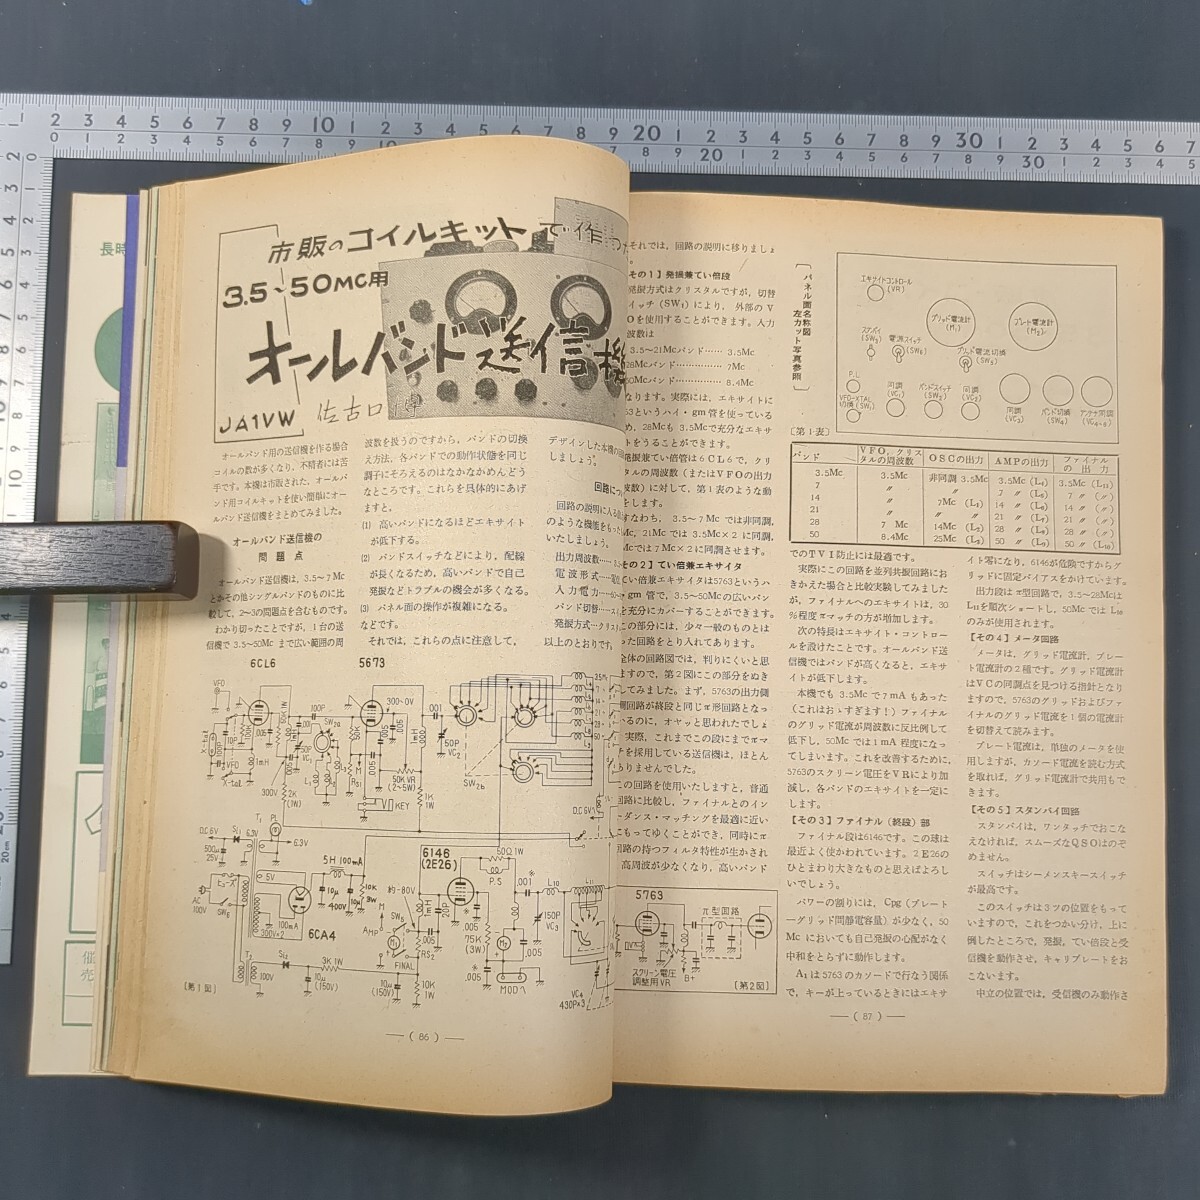 市販のコイルキットで作った
3.5～50MC用
オールバンド送信機
JA1VW
オールバンド用の送信機を作る場合
コイルの数が多くなり、不精者には苦
手です。本機は市販された、オールバ
ンド用コイルキットを使い簡単にオー
ルバンド送信機をまとめてみました。
オールバンド送信機の
問題点
オールバンド送信機は、3.5～7Mc
とかその他シングルバンドのものに比
較して、2～3の問題点を含むものです。
わかり切ったことですが、1台の送
信機で3.5～50Mcまで広い範囲の周
波数を扱うのですから、バンドの切換
え方法、各バンドでの動作状態を同じ
調子にそろえるのはなかなかめんどう
なところです。これらを具体的にあげ
ますと。
(1) 高いバンドになるほどエキサイト
が低下する。
(2) バンドスイッチなどにより、配線
が長くなるため、高いバンドで自己
発振などトラブルの機会が多くなる。
(3) パネル面の操作が複雑になる。
などです。
それでは、これらの点に注意して、
デザインした本機の
しましょう。
回路につ
回路の説明に入る
のような機能をもっ
いたしましょう。
出力周波数
電波形式
入力電力
バンド切替
発振方式
以上のとおりです。
6CL6
5673
VFO
X-tal
300～0V
50K VR
(2～5W)
KEY
SW2b
VC2
D.C 6V
6.3V
5V
5H 100mA
6CA4
300V×2
100mA
AC
100V
ヒューズ
6146
(2E26)
50Ω 1W
P.S
約-80V
FINAL
MOD へ
VC4
430P×3
〔第1図〕
—（86）—
それでは、回路の説明に移りましょ
う。
【その1】発振兼てい倍段
発振方式はクリスタルですが、切替
スイッチ（SW₁）により、外部のV
FOを使用することができます。入力
周波数は
3.5～21Mcバンド……3.5Mc
28Mcバンド……………7Mc
50Mcバンド……………8.4Mc
なります。実際には、エキサイトに
63というハイ・gm管を使っている
め、28Mcも3.5Mcで充分なエキサ
トをうることができます。
発振兼てい倍管は6CL6で、クリ
タルの周波数（またはVFOの出力
波数）に対して、第1表のような動
をします。
すなわち、3.5～7Mcでは非同調、
Mc、21Mcでは3.5Mc×2に同調、
Mcでは7Mc×2に同調させます。
【その2】てい倍兼エキサイタ
てい倍兼エキサイタは5763というハ
gm管で、3.5～50Mcの広いバン
を充分にカバーすることができます。
この部分には、少々一般のものとは
った回路をとり入れてあります。
全体の回路図では、判りにくいと思
ますので、第2図にこの部分をぬき
してみました。まず、5763の出力側
調回路が終段と同じπ形回路となっ
いるのに、オヤッと思われたでしょ
実際、これまでこの段にまでπマ
チを採用している送信機は、ほとん
ありませんでした。
この回路を使用いたしますと、普通
回路に比較し、ファイナルとのイン
ーダンス・マッチングを最適に近い
にもってゆくことができ、同時にπ
回路の持つフィルタ特性が生かされ
高周波が少なくなり、高いバンド
5763
π型回路
スクリーン電圧
調整用VR
B+
〔第2図〕
パネル面名称図
左カット写真参照
エキサイトコントロール
(VR)
グリッド電流計
(M₁)
プレート電流計
(M₂)
スタバイ
(SW₅)
電源スイッチ
(SW₆)
グリッド電流切換
(SW₃)
P.L
VFO-XTAL
切換(SW₁)
同調
(VC₁)
バンドスイッチ
(SW₂)
同調
(VC₂)
同調
(VC₃)
バンド切換
(SW₄)
アンテナ同調
〔第1表〕
バンド VFO、クリスタルの周波数 OSCの出力 AMPの出力 ファイナルの出力
3.5Mc 3.5Mc 非同調 3.5Mc 3.5Mc (L₄) 3.5Mc (L₁₁)
7 〃 〃 7 〃 (L₆) 7 〃 (〃)
14 〃 7Mc (L₁) 14 〃 (L₆) 14 〃 (〃)
21 〃 〃 21 〃 (L₇) 21 〃 (〃)
28 7 Mc 14Mc (L₂) 28 〃 (L₈) 28 〃 (〃)
50 8.4Mc 25Mc (L₃) 50 〃 (L₉) 50 〃 (L₁₀)
でのTVI防止には最適です。
実際にこの回路を並列共振回路にお
きかえた場合と比較実験してみました
が、ファイナルへのエキサイトは、30
％程度πマッチの方が増加します。
次の特長はエキサイト・コントロー
ルを設けたことです。オールバンド送
信機ではバンドが高くなると、エキサ
イトが低下します。
本機でも3.5Mcで7mAもあった
（これはおゝすぎます！）ファイナル
のグリッド電流が周波数に反比例して
低下し、50Mcでは1mA程度になっ
てしまいます。これを改善するために、
5763のスクリーン電圧をVRにより加
減し、各バンドのエキサイトを一定に
します。
【その3】ファイナル（終段）部
ファイナル段は6146です。この球は
最近よく使かわれています。2E26の
ひとまわり大きなものと思えばよろし
いでしょう。
パワーの割りには、Cpg（プレート
ーグリッド間静電容量）が少なく、50
Mcにおいても自己発振の心配がなく
中和をとらずに動作します。
A₁は5763のカソードで行なう関係
で、キーが上っているときにはエキサ
イト零になり、6146が危険ですからグ
リッドに固定バイアスをかけています。
出力段はπ型回路で、3.5～28Mcは
L₁₁を順次ショートし、50McではL₁₀
のみが使用されます。
【その4】メータ回路
メータは、グリッド電流計、プレー
ト電流計の2種です。グリッド電流計
はVCの同調点を見つける指針となり
ますので、5763のグリッドおよびファ
イナルのグリッド電流を1個の電流計
を切替えて読みます。
プレート電流は、単独のメータを使
用しますが、カソード電流を読む方式
を取れば、グリッド電流計で共用もで
きます。
【その5】スタンバイ回路
スタンバイは、ワンタッチでおこな
えなければ、スムーズなQSOはのぞ
めません。
スイッチはシーメンスキースイッチ
が最高です。
このスイッチは3ツの位置をもって
いますので、これをつかい分け、上に
倒したところで、発振、てい倍段と受
信機を動作させ、キャリブレートをお
こないます。
中立の位置では、受信機のみ動作さ
—（87）—